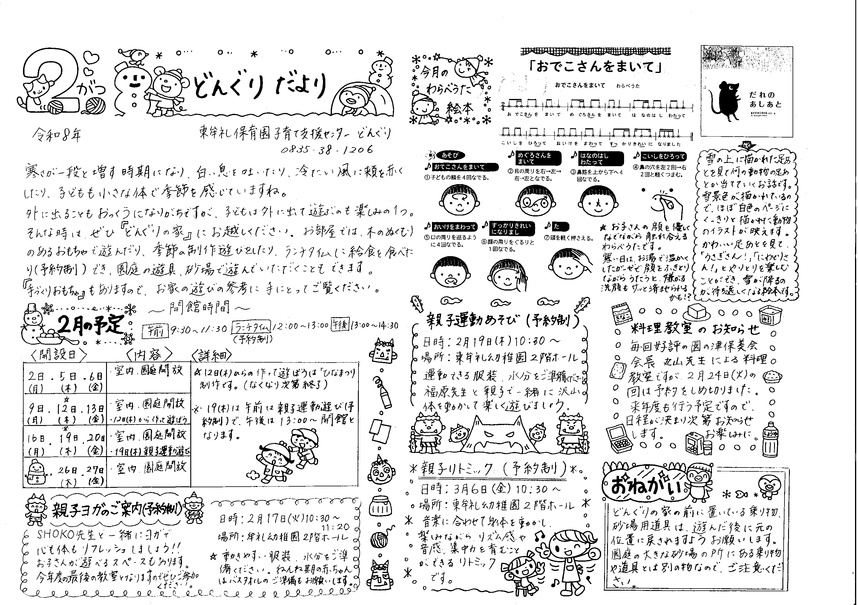 2がつ
どんぐり だより
令和8年
東牟礼保育園子育て支援センター どんぐり
0835-38-1206
寒さが一段と増す時期になり、白い息を吐いたり、冷たい風に頬を赤く
したり、子どもも小さな体で季節を感じていますね。
外に出ることもおっくうになりがちですが、子どもは外に出て遊ぶのも楽しみの1つ。
そんな時は、ぜひ『どんぐりの家』にお越しください。お部屋では、木のぬくもり
のあるおもちゃで遊んだり、季節の制作遊びをしたり、ランチタイムに給食を食べた
り(予約制)でき、園庭の遊具、砂場で遊んでいただくこともできます。
『手づくりおもちゃ』もありますので、お家の遊びの参考に手にとってご覧ください。
〜開館時間〜
午前 9:30〜11:30 ランチタイム 12:00〜13:00 午後 13:00〜14:30
(予約制)
2月の予定
〈開設日〉 〈内容〉 〈詳細〉
2日.5日.6日 室内、園庭開放
(月) (木) (金)
9日.12日.13日 室内、園庭開放
(月) (木) (金) ・12日(木)から作って遊ぼう
16日.19日.20日 室内、園庭開放
(月) (木) (金) ・19日(木)親子運動遊び
26日.27日 室内、園庭開放
(木) (金)
☆12日(木)からの作って遊ぼうは"ひなまつり
制作です。(なくなり次第終了)
☆19(木)は午前は親子運動遊び(予
約制)で、午後は13:00〜開館と
なります。
親子ヨガのご案内(予約制)
SHOKO先生と一緒にヨガで
心も体もリフレッシュしましょう!!
お子さんが遊べるスペースもあります。
今年度の最後の教室となりますのでぜひご参加
ください。
日時:2月17日(火)10:30〜
11:20
場所:牟礼幼稚園2階ホール
☆動きやすい服装、水分をご準
備ください。ねんね期の赤ちゃん
はバスタオルのご準備もお願いします。
今月の
わらべうた
絵本
「おでこさんをまいて」
おでこさんをまいて わらべうた
おでこさんを まいて めぐろさんを まいて はなのはし わたって
こいしを ひろって おいけを まわって すっかり きれいに なりました
あそび
おでこさんをまいて
①子どもの額を4回なでる。
めぐろさんを
まいて
②目の周りを右→左→
右→左となでる。
はなのはし
わたって
③鼻筋を上から下へ4
回なでる。
こいしをひろって
④鼻の穴を左2回→右
2回と軽くつまむ。
おいけをまわって
⑤口の周りを巡るよう
に4回なでる。
すっかりきれい
になりまし
⑥顔の周りをぐるりと
1回なでる。
た
⑦頭を軽く押さえる。
☆お子さんの顔を優しく
なでながら触れ合える
わらべうたです。
寒い日は、お湯で温かく
したガーゼで顔をふきとり
ながらうたうと、嫌がる
洗顔もサッと済ませられる
かも!?
だれの
あしあと
雪の上に描かれた足あ
とを見て何の動物の足あ
とか当てていくお話です。
雪景色が描かれているの
で、ほぼ白色のページに
くっきりと描かれた動物
のイラストが映えます。
かわいい足あとを見て
「うさぎさん!」「にわとりさ
ん!」とやりとりを楽しむ
ことができ、雪が降るの
が待ち遠しくなる絵本です。
親子運動あそび(予約制)
日時:2月19日(木)10:30〜
場所:東牟礼幼稚園2階ホール
運動できる服装、水分をご準備ください。
福原先生と親子で一緒に沢山
体を動かして楽しく遊びましょう。
親子リトミック(予約制)
日時:3月6日(金)10:30〜
場所:東牟礼幼稚園2階ホール
音楽に合わせてお体を動かし、
楽しみながらリズム感や
音感、集中力を育むこと
ができるリトミック
です。
料理教室のお知らせ
毎回好評の園の津保美会
会長 北山先生による料理
教室ですが、2月24日(火)の
回は予約をしめ切りました。
来年度も行う予定ですので、
日程が決まり次第お知らせ
します。 お楽しみに。
おねがい
どんぐりの家の前に置いている乗り物、
砂場用道具は、遊んだ後に元の
位置に戻されますようお願いします。
園庭の大きな砂場の所にある乗り物
や道具とは別の物なので、ご注意くださ
い。